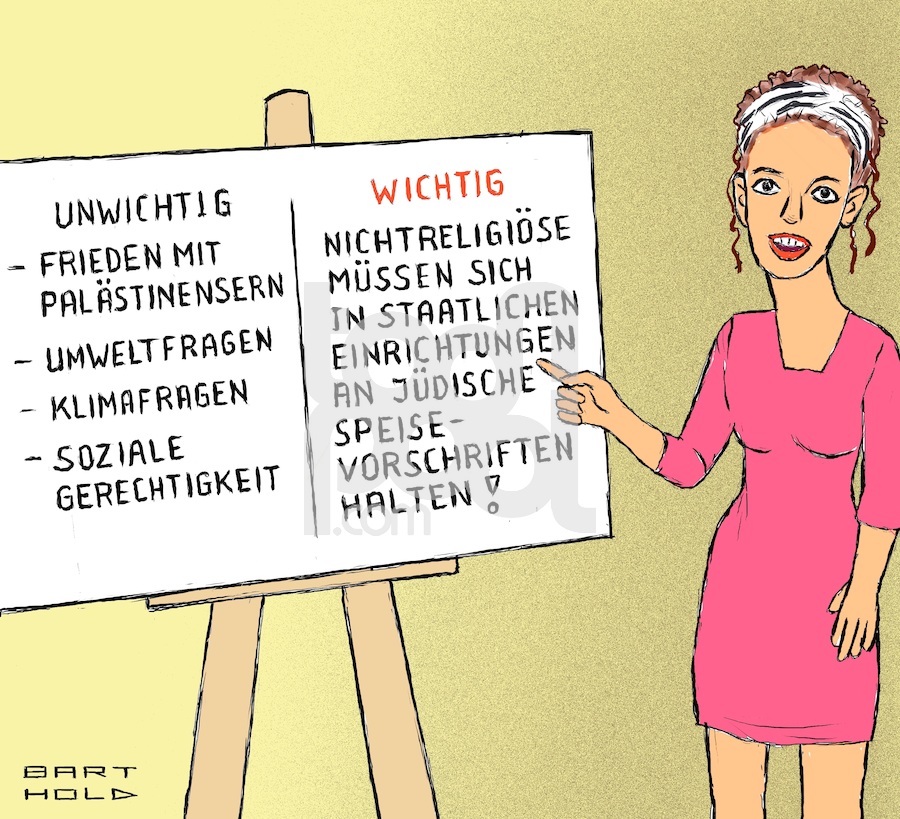 UNWICHTIG
- FRIEDEN MIT
PALÄSTINENSERN
- UMWELTFRAGEN
- KLIMAFRAGEN
- SOZIALE
GERECHTIGKEIT
WICHTIG
NICHTRELIGIÖSE
MÜSSEN SICH
IN STAATLICHEN
EINRICHTUNGEN
AN JÜDISCHE
SPEISE-
VORSCHRIFTEN
HALTEN!
.com
BART
HOLD